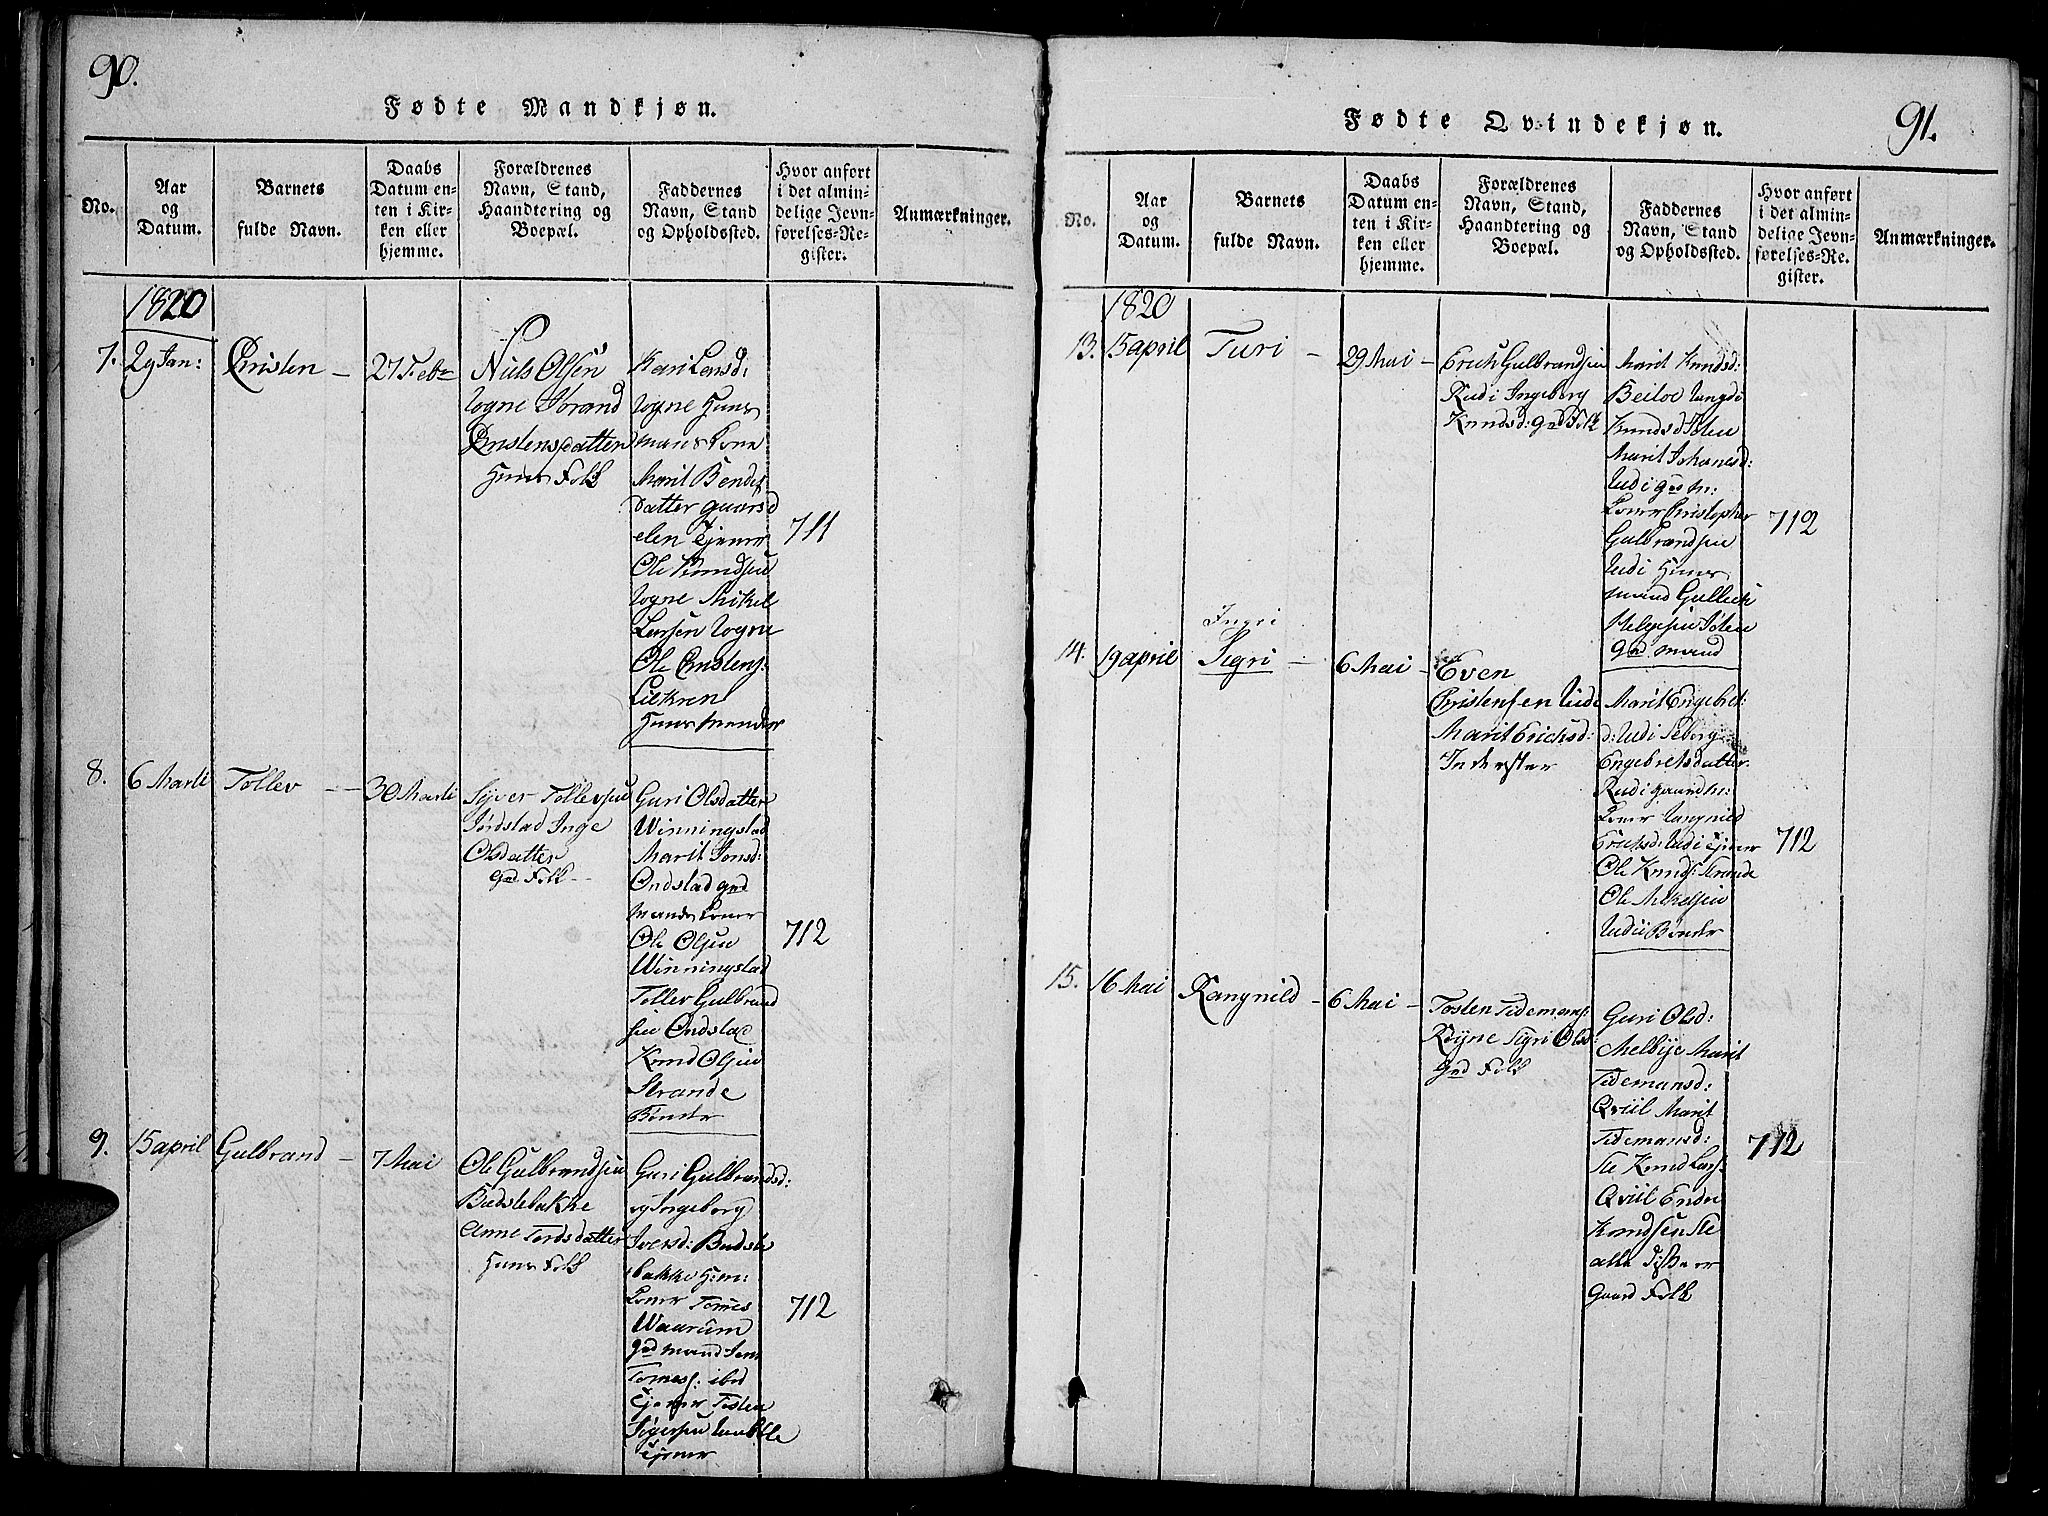 90.
Fødte Mandkjøn.
No.
Aar
og
Datum.
Barnets
fulde Navn.
Daabs
Datum en-
ten i Kir-
ken eller
hjemme.
Forældrenes
Navn, Stand,
Haandtering og
Boepæl.
Faddernes
Navn, Stand
og Opholdssted.
Hvor anført
i det almin-
delige Jevn-
førelses-Re-
gister.
Anmærkninger.
1820
7.
29 Jan:
Christen
27 Febr
Niels Olsen
Christensdatter
Huus Folk
Kari Larsd:
Marit Bendes
datter
Ole Knudsen
Mikel
Larsen
Ole Christens:
Lilkren
Huusmænder
711
8.
6 Marti
Tollev
30 Marti
Syver Tollevsen
Jordstad Inge
Olsdatter
Grd Folk
Guri Olsdatter
Winningstad
Marit Jonsd:
Ondstad grd
mands koner
Ole Olsen
Winningstad
Tollev Gulbrand
sen Ondstad
Knud Olsen
Strande
Bønder
712
9.
15 april
Gulbrand
7 Mai
Ole Gulbrandsen
Budslebakke
Anne Tordsdatter
Huus Folk
Guri Gulbrandsd:
og Ingeborg
Iversd: Budsle
bakke Huus:
koner Tomes
Waarum
grd mand
Tomess: ibd
Tjener Tosten
Tjener
712
91.
Fødte Qvindekjøn.
No.
Aar
og
Datum.
Barnets
fulde Navn.
Daabs
Datum en-
ten i Kir-
ken eller
hjemme.
Forældrenes
Navn, Stand,
Haandtering og
Boepæl.
Faddernes
Navn, Stand
og Opholdssted.
Hvor anført
i det almin-
delige Jevn-
førelses-Re-
gister.
Anmærkninger.
1820
13.
15 april
Turi
29 Mai
Erich Gulbrandsen
Rudi Ingeborg
Knudsd: grd Folk
Marit Knudsd:
Beiloe
Knudsd
Marit Johanesd:
koner Christopher
Gulbrandsen
Rudi Huus
mand Gullich
Helgesen
Grd mand
712
14.
19 april
Ingri
Sigri
6 Mai
Even
Christensen Rudi
Marit Erichsd:
Inderster
Marit Engebret:
d: Rudi Seborg
Engebretsdatter
Rudi gaardm:
koner Rangnild
Erichsd: Rudi Tjener
Ole Knuds: Strande
Ole Mikelsen
Rudi Bønder
712
15.
16 Mai
Rangnild
6 Mai
Tosten Tidemans:
Røyne Sigri Olsd
Grd Folk
Guri Olsd:
Melbye Marit
Tidemansd:
Qviil Marit
Tidemansd:
Ste Knud Lars:
Qviil Endre
Knudsen Ste
alle disse er
Gaard Folk
712